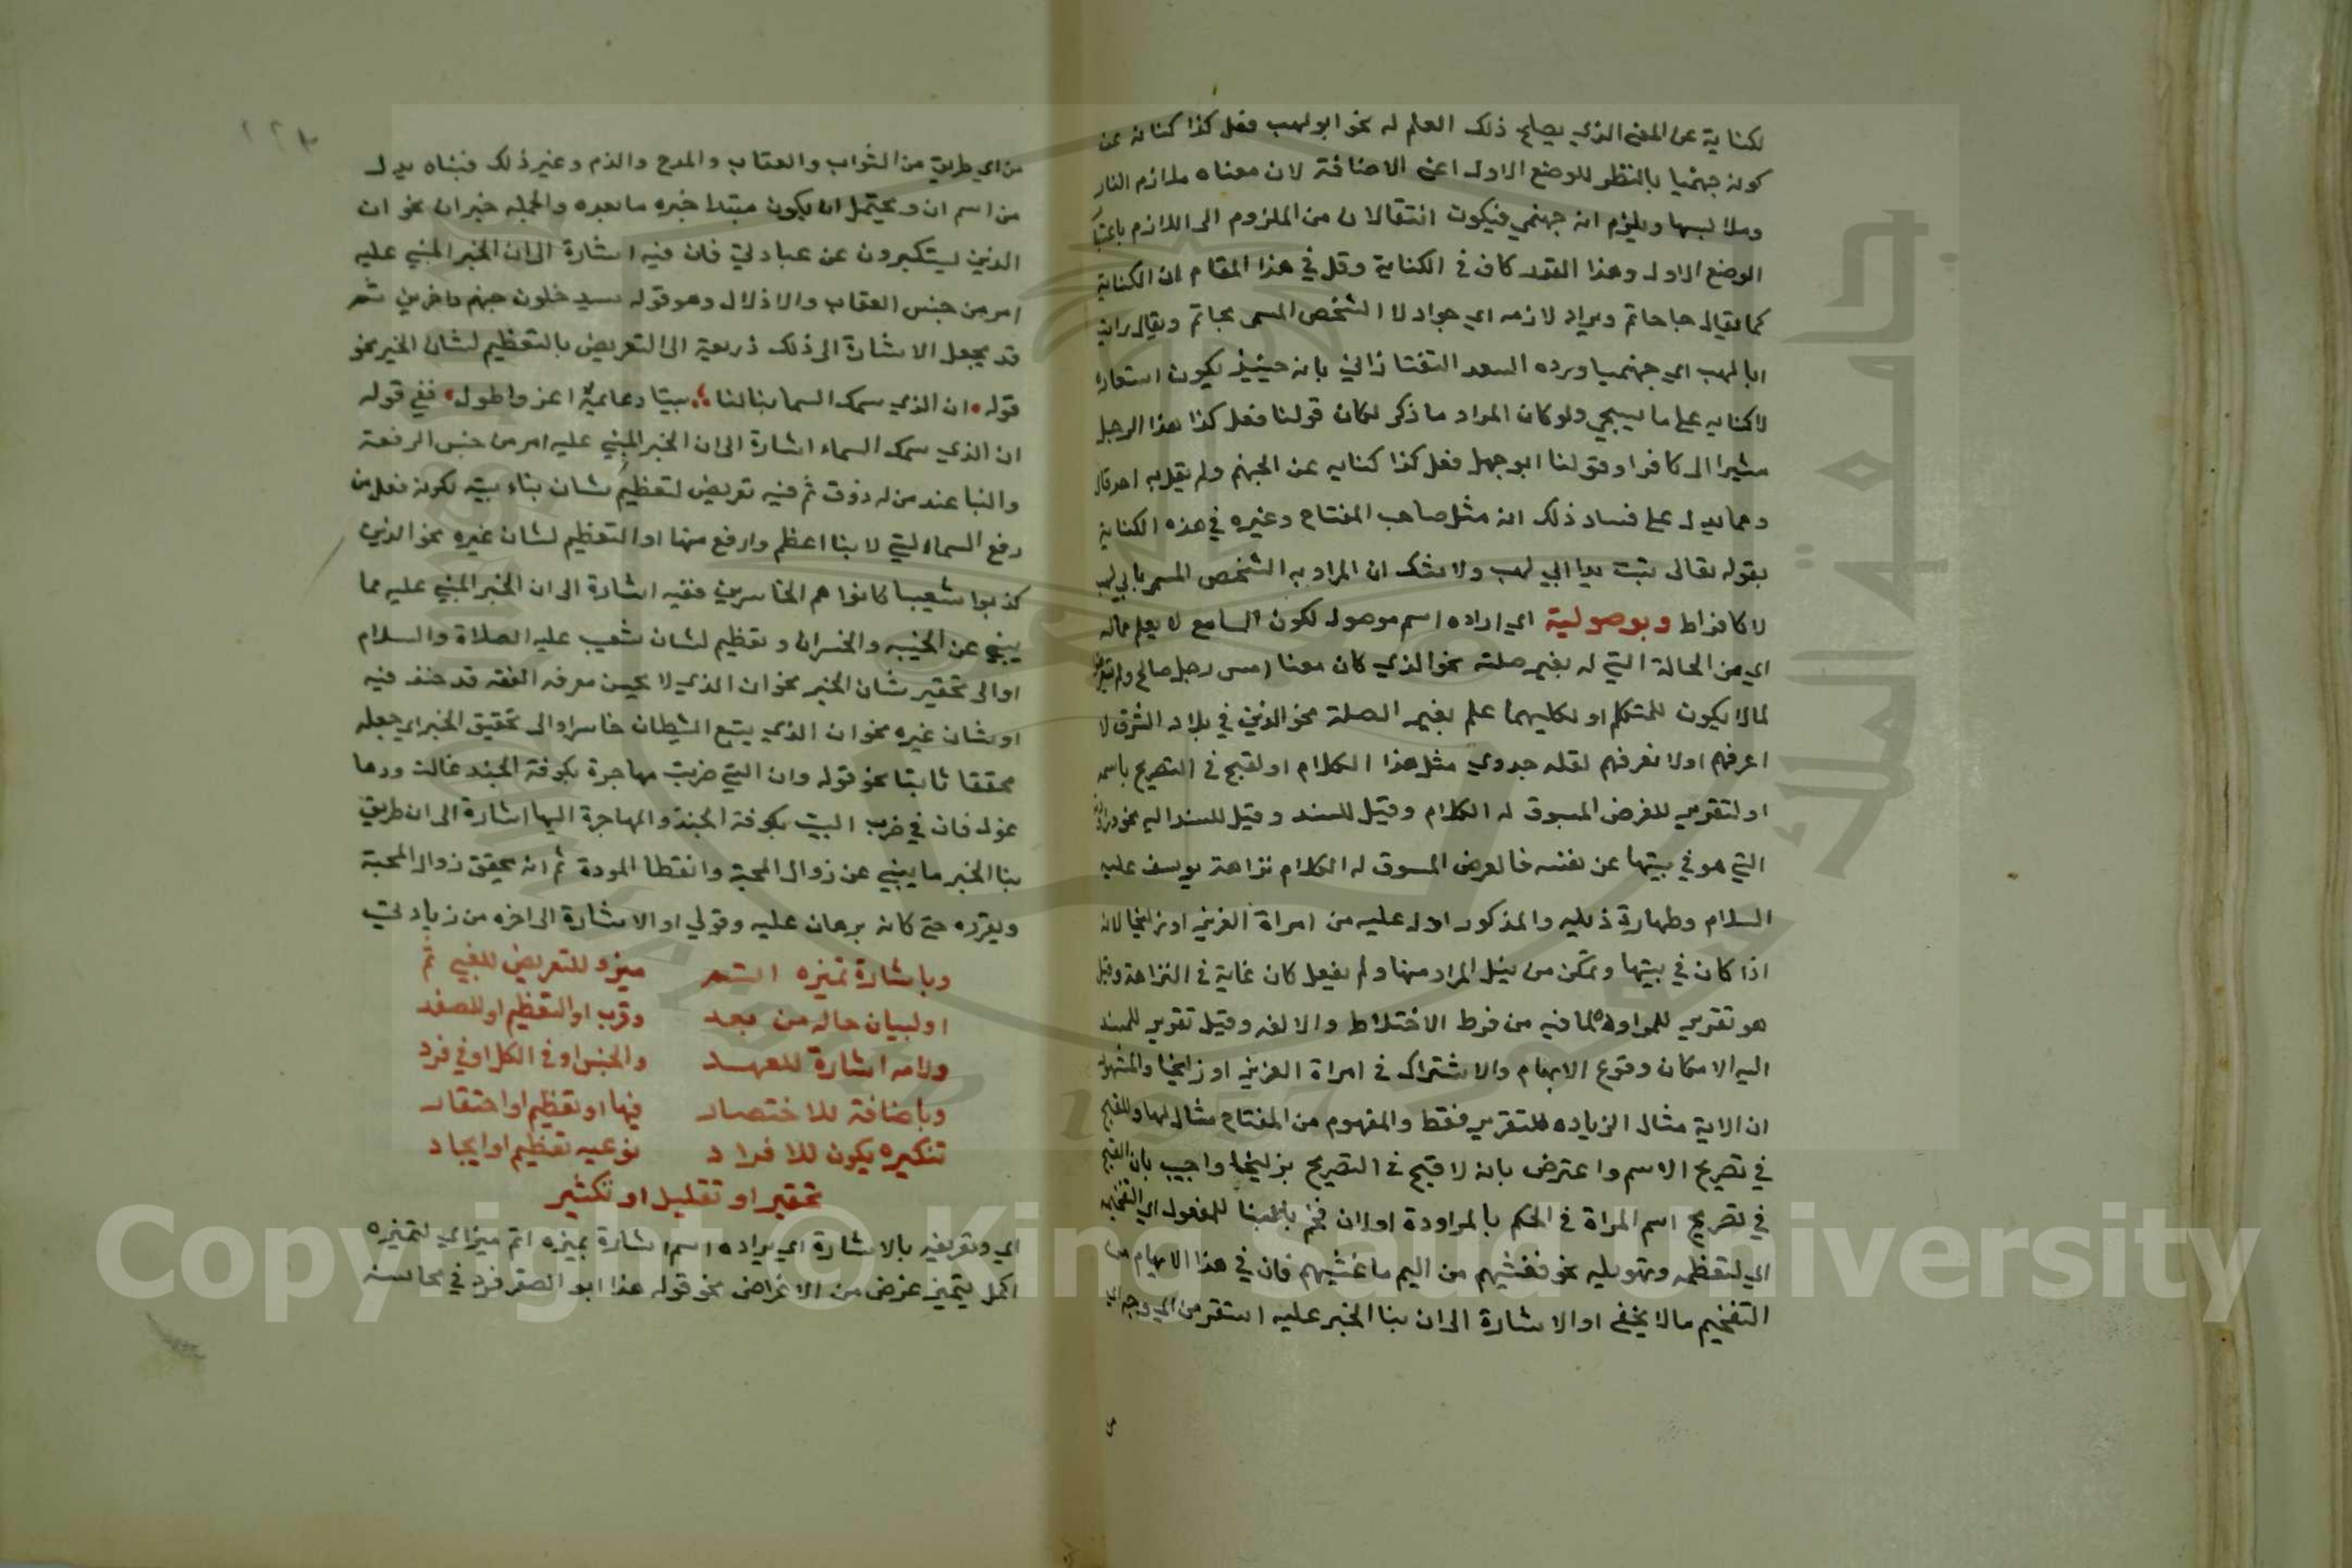 لكناية عن المعنى الذي يصلح ذلك العلم له نحو ابو لهب فعل كذا كناية عن
كونه جهنميا بالنظر للوضع الاول اعني الاضافة لان معناه ملازم النار
وملابسها ويلزم انه جهنمي فيكون انتقالا من الملزوم الى اللازم باعتبار
الوضع الاول وهذا القدر كاف في الكناية وقيل في هذا المقام ان الكناية
كما يقال جا حاتم ويراد لازمه اي جواد لا الشخص المسمى بحاتم ويقال رايت
ابا لهب اي جهنميا ورده السعد التفتازاني بانه حينئذ يكون استعارة
لا كنايه على ما سيجي ولو كان المراد ما ذكر لكان قولنا فعل كذا هذا الرجل
مشيرا الى كافر او قولنا ابو جهل فعل كذا كنايه عن الجهنم ولم يقل به احد قال
ومما يدل على فساد ذلك انه مثل صاحب المفتاح وغيره في هذه الكناية
بقوله تعالى تبت يدا ابي لهب ولا شك ان المراد به الشخص المسمى بابي لهب
لا كافر اط وبموصولية اي ايراده اسم موصول لكون السامع لا يعلم حاله
اي من الحالة التي له بغير صلته نحو الذي كان معنا امس رجل صالح ولم يتعرض
لما لا يكون للمتكلم او لكليهما علم بغير الصلة نحو الذين في بلاد الشرق لا
اعرفهم او لا نعرفهم لقلة جدوي مثل هذا الكلام او لقبح في التصريح باسمه
او لتقرير للغرض المسوق له الكلام وقيل للمسند وقيل للمسند اليه نحو وراودته
التي هو في بيتها عن نفسه فالغرض المسوق له الكلام نزاهة يوسف عليه
السلام وطهارة ذيله والمذكور ادل عليه من امراة العزيز او زليخا لانه
اذا كان في بيتها وتمكن من نيل المراد منها ولم يفعل كان غاية في النزاهة وقيل
هو تقرير للمراودة لما فيه من فرط الاختلاط والالفه وقيل تقرير للمسند
اليه لامكان وقوع الابهام والاشتراك في امراة العزيز او زليخا والمشهور
ان الاية مثال لزيادة التقرير فقط والمفهوم من المفتاح مثال لها وللقبح
في تصريح الاسم واعترض بانه لا قبح في التصريح بزليخا واجيب بان القبح
في تصريح اسم المراة في الحكم بالمراودة او ان فخم بالبنا للمفعول اي لتفخيمه
اي لتعظيمه وتهويله نحو فغشيهم من اليم ما غشيهم فان في هذا الابهام من
التفخيم ما لا يخفى او الاشارة الى ان بنا الخبر عليه استقر من اي وجه اي
من اي طريق من الثواب والعقاب والمدح والذم وغير ذلك فبناه بدل
من اسم ان ويحتمل ان يكون مبتدا خبره ما بعده والجمله خبر ان نحو ان
الذين يستكبرون عن عبادتي فان فيه اشارة الى ان الخبر المبني عليه
امر من جنس العقاب والاذلال وهو قوله سيدخلون جهنم داخرين ثم
قد يجعل الاشارة الى ذلك ذريعة الى التعريض بالتعظيم لشان الخبر نحو
قوله ان الذي سمك السما بنا لنا بيتا دعائمه اعز واطول ففي قوله
ان الذي سمك السماء اشارة الى ان الخبر المبني عليه امر من جنس الرفعة
والبنا عند من له ذوق ثم فيه تعريض لتعظيم شان بناء بيته لكونه فعل من
رفع السماء التي لا بنا اعظم وارفع منها او التعظيم لشان غيره نحو الذين
كذبوا شعيبا كانوا هم الخاسرين ففيه اشارة الى ان الخبر المبني عليه مما
ينبي عن الخيبه والخسران وتعظيم لشان شعيب عليه الصلاة والسلام
او الى تحقير شان الخبر نحو ان الذي لا يحسن معرفه الفقه قد صنف فيه
او شان غيره نحو ان الذي يتبع الشيطان خاسر او الى تحقيق الخبر اي جعله
محققا ثابتا نحو قوله وان التي ضربت مهاجرة بكوفة الجند غالت ودها
غول فان في ضرب البيت بكوفة الجند والمهاجرة اليها اشارة الى ان طريق
بنا الخبر ما ينبي عن زوال المحبة وانقطاع المودة ثم انه يحقق زوال المحبة
ويقرره حتى كانه برهان عليه وقولي او الاشارة الى اخره من زيادتي
وباشارة تميزه اشتهر ميزه للتعريض للغبي ثم
او لبيان حاله من بعد وقرب او التعظيم او للصغد
ولامه اشارة للعهد والجنس او في الكل او في فرد
وباضافة للاختصار فيها او تعظيم او احتقار
تنكيره يكون للافراد نوعيه تعظيم او ايجاد
تحقير او تقليل او تكثير
اي وتعريفه بالاشارة اي ايراده اسم اشارة بميزه اتم ميز اي لتميزه
اكمل تميز غرض من الاغراض نحو قوله هذا ابو الصقر فرد في محاسنه
Copyright © King Saud University
1957